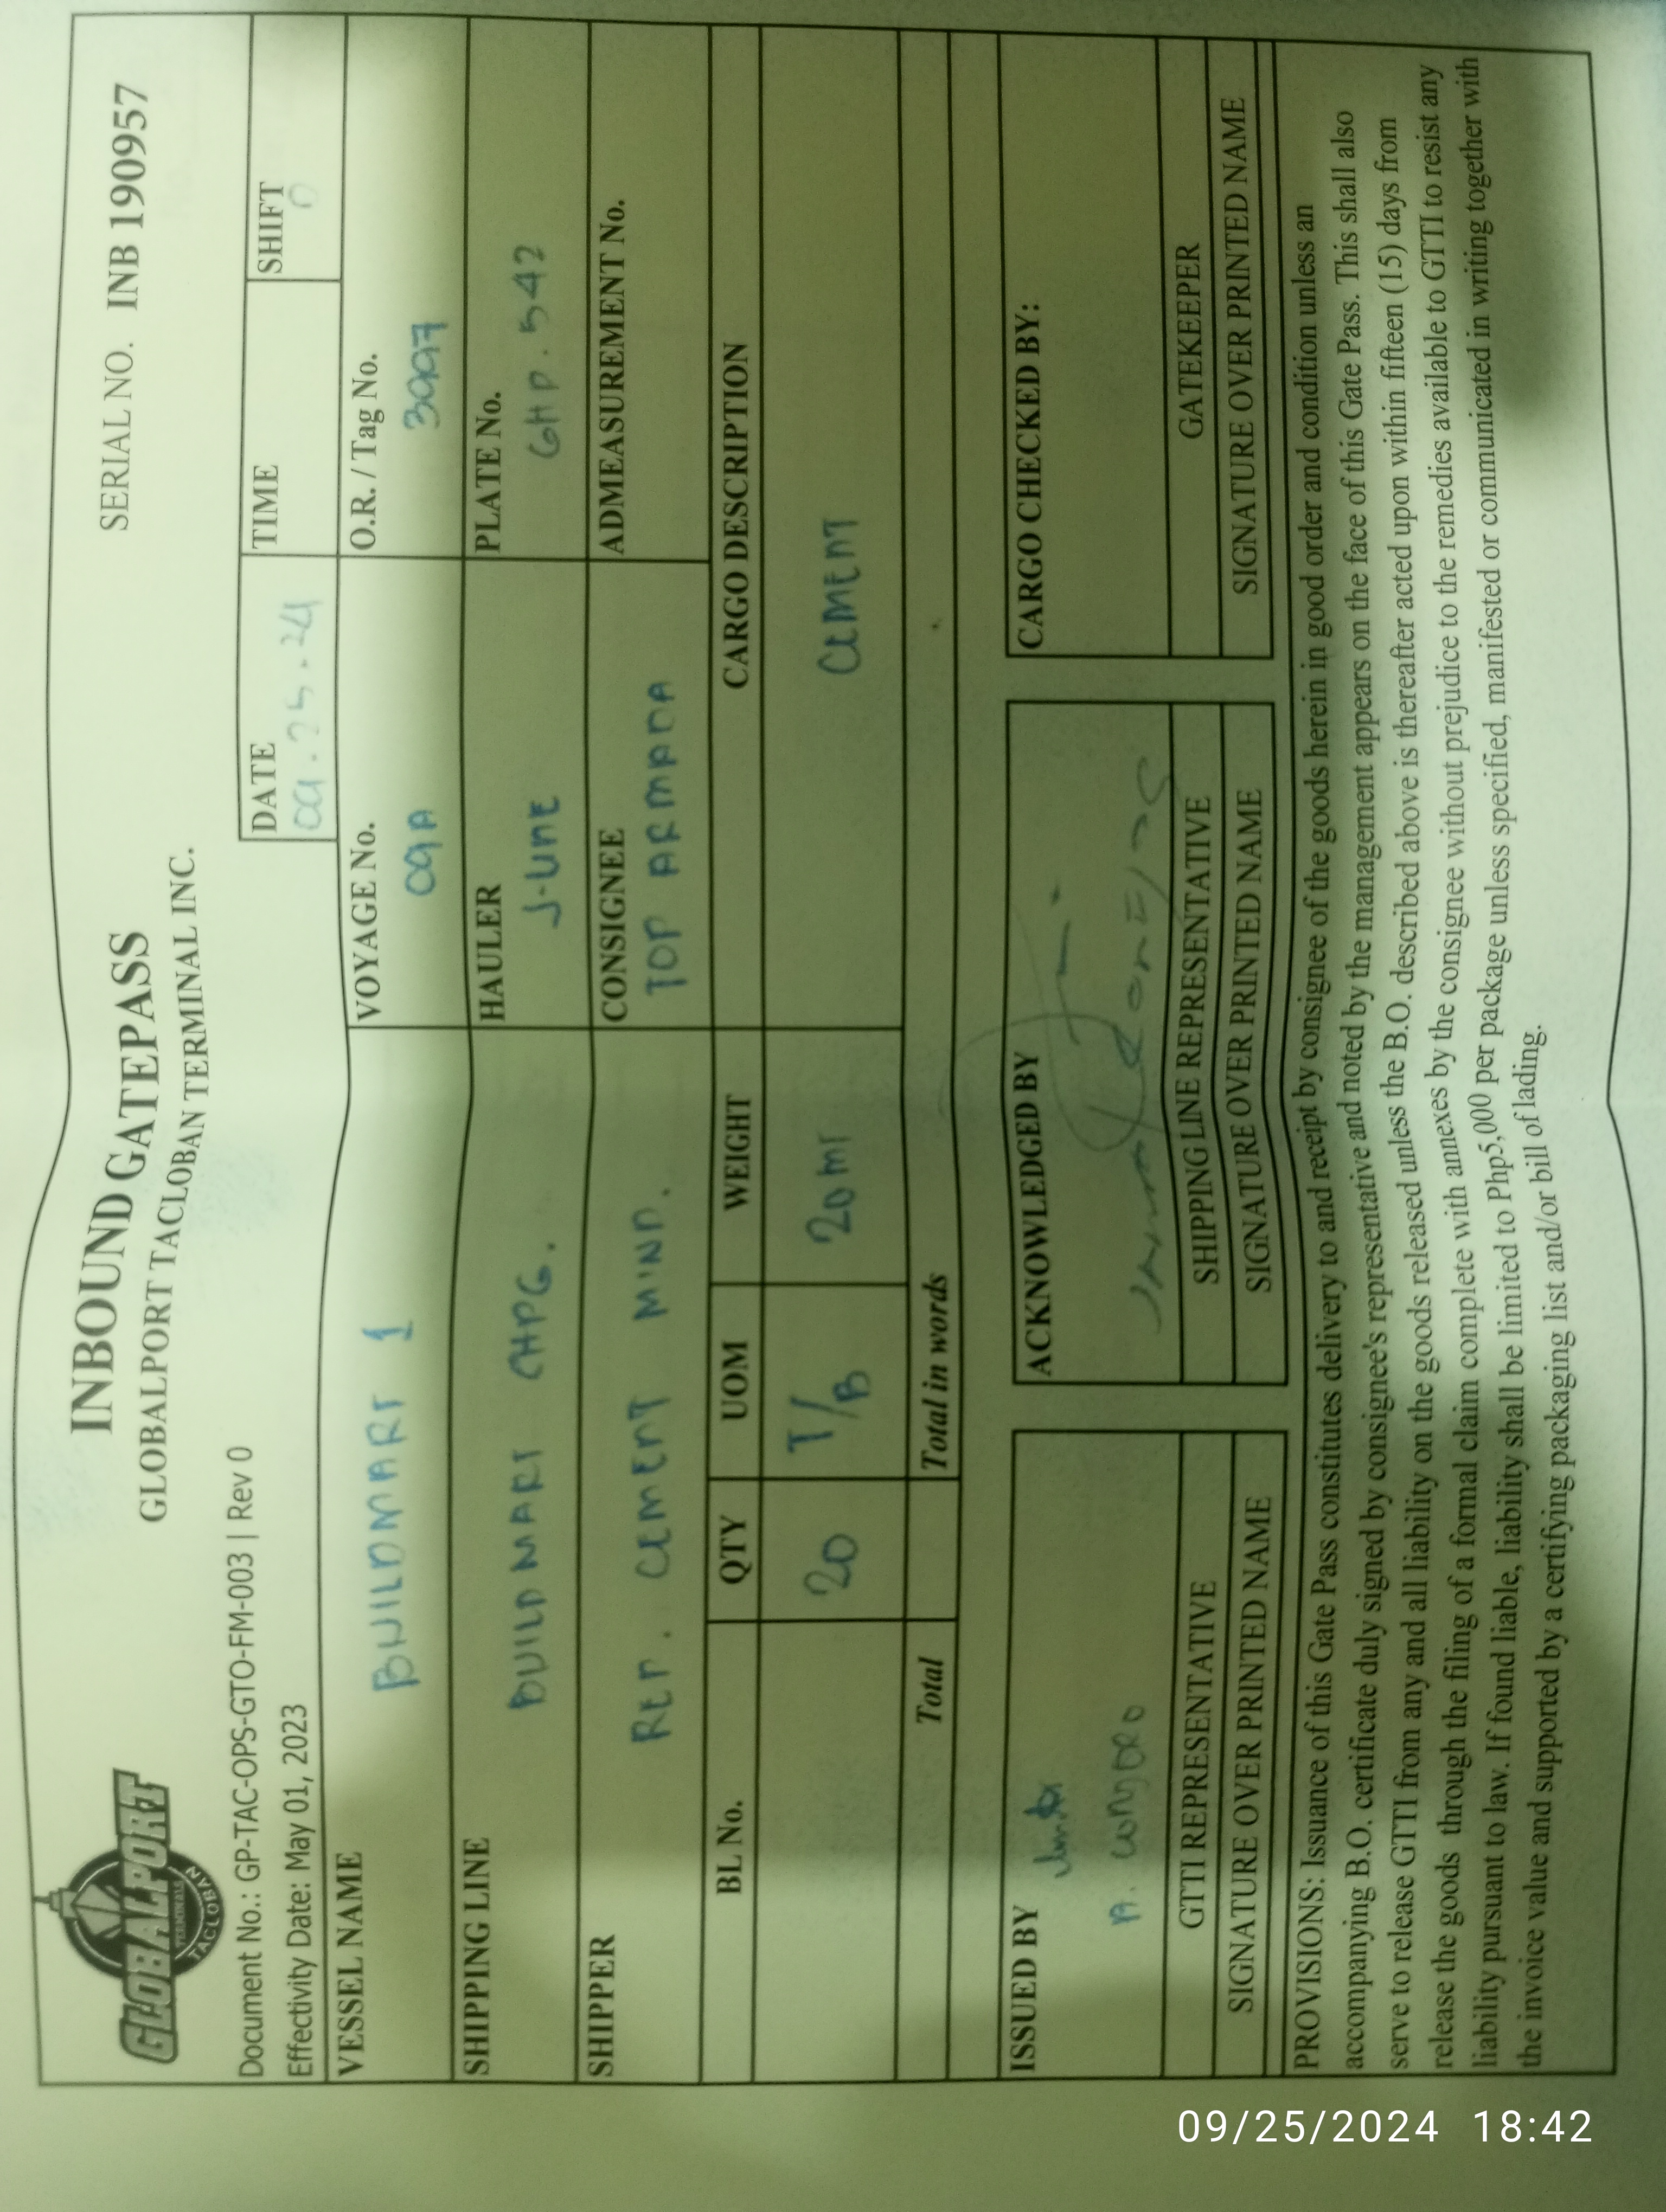 GLOBALPORT
TERMINALS
TACLOBAN
INBOUND GATEPASS
GLOBALPORT TACLOBAN TERMINAL INC.
SERIAL NO. INB 190957
Document No.: GP-TAC-OPS-GTO-FM-003 | Rev 0
Effectivity Date: May 01, 2023
DATE TIME SHIFT
09.25.24
VESSEL NAME VOYAGE No. O.R. / Tag No.
BUILDMART 1 09A 3997
SHIPPING LINE HAULER PLATE No.
BUILDMART CHPG. J-UNE GHP. 542
SHIPPER CONSIGNEE ADMEASUREMENT No.
REP. CEMENT MIND. TOP ARMADA
BL No. QTY UOM WEIGHT CARGO DESCRIPTION
20 T/B 20MT CEMENT
Total Total in words
ISSUED BY ACKNOWLEDGED BY CARGO CHECKED BY:
GTTI REPRESENTATIVE SHIPPING LINE REPRESENTATIVE GATEKEEPER
SIGNATURE OVER PRINTED NAME SIGNATURE OVER PRINTED NAME SIGNATURE OVER PRINTED NAME
PROVISIONS: Issuance of this Gate Pass constitutes delivery to and receipt by consignee of the goods herein in good order and condition unless an
accompanying B.O. certificate duly signed by consignee's representative and noted by the management appears on the face of this Gate Pass. This shall also
serve to release GTTI from any and all liability on the goods released unless the B.O. described above is thereafter acted upon within fifteen (15) days from
release the goods through the filing of a formal claim complete with annexes by the consignee without prejudice to the remedies available to GTTI to resist any
liability pursuant to law. If found liable, liability shall be limited to Php5,000 per package unless specified, manifested or communicated in writing together with
the invoice value and supported by a certifying packaging list and/or bill of lading.
09/25/2024 18:42